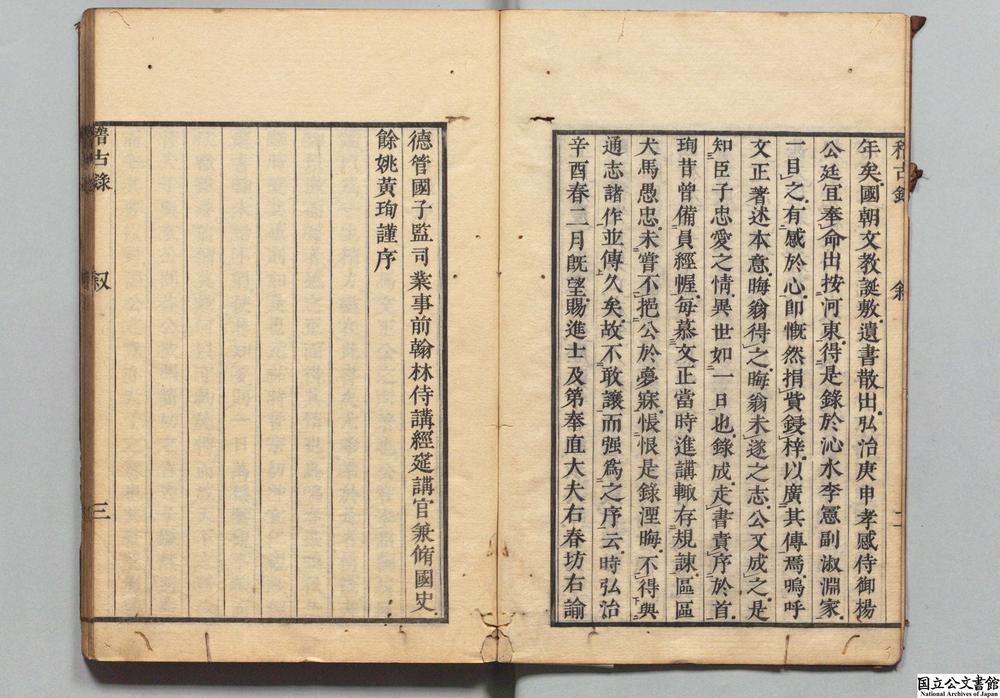 年矣國朝文教誕敷遺書散出弘治庚申孝感侍御楊
公廷宜奉命出按河東得是錄於沁水李憲副淑淵家
一目之有感於心卽慨然捐貲鋟梓以廣其傳焉嗚呼
文正著述本意晦翁得之晦翁未遂之志公又成之是
知臣子忠愛之情異世如一日也錄成走書責序於首
珣昔曾備員經幄每慕文正當時進講輙存規諫區區
犬馬愚忠未嘗不挹公於夢寐悵悵是錄湮晦不得與
通志諸作並傳久矣故不敢讓而强爲之序云時弘治
辛酉春二月旣望賜進士及第奉直大夫右春坊右諭
稽古錄 叙 二
德管國子監司業事前翰林侍講經筵講官兼脩國史
餘姚黃珣謹序
稽古錄 叙 三
国立公文書館
National Archives of Japan